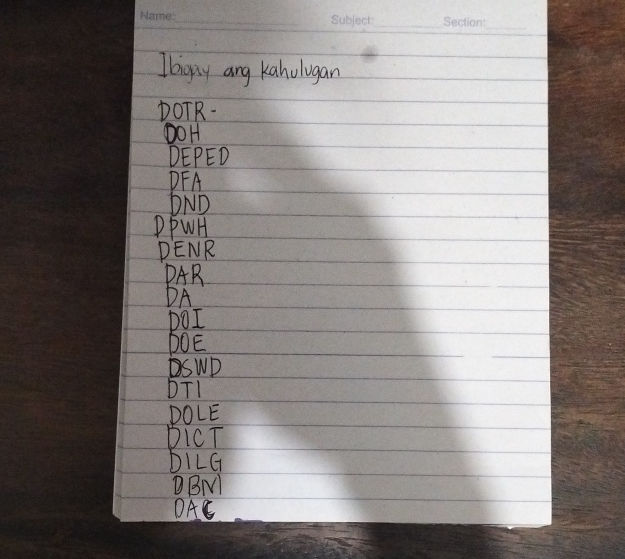 Name: Subject: Section:
Ibigay ang kahulugan
DOTR-
DOH
DEPED
DFA
DND
DPWH
DENR
DAR
DA
DOI
DOE
DSWD
DTI
DOLE
DICT
DILG
DBM
DAC